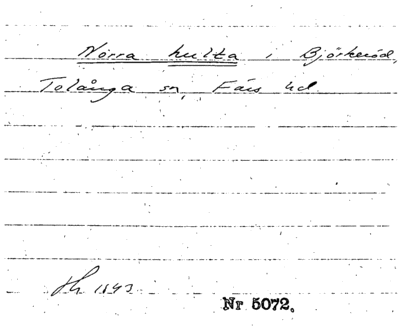 Norra hulta i Björkeröd,
Tolånga sn, Färs hd
Hk 1843
Nr 5072.